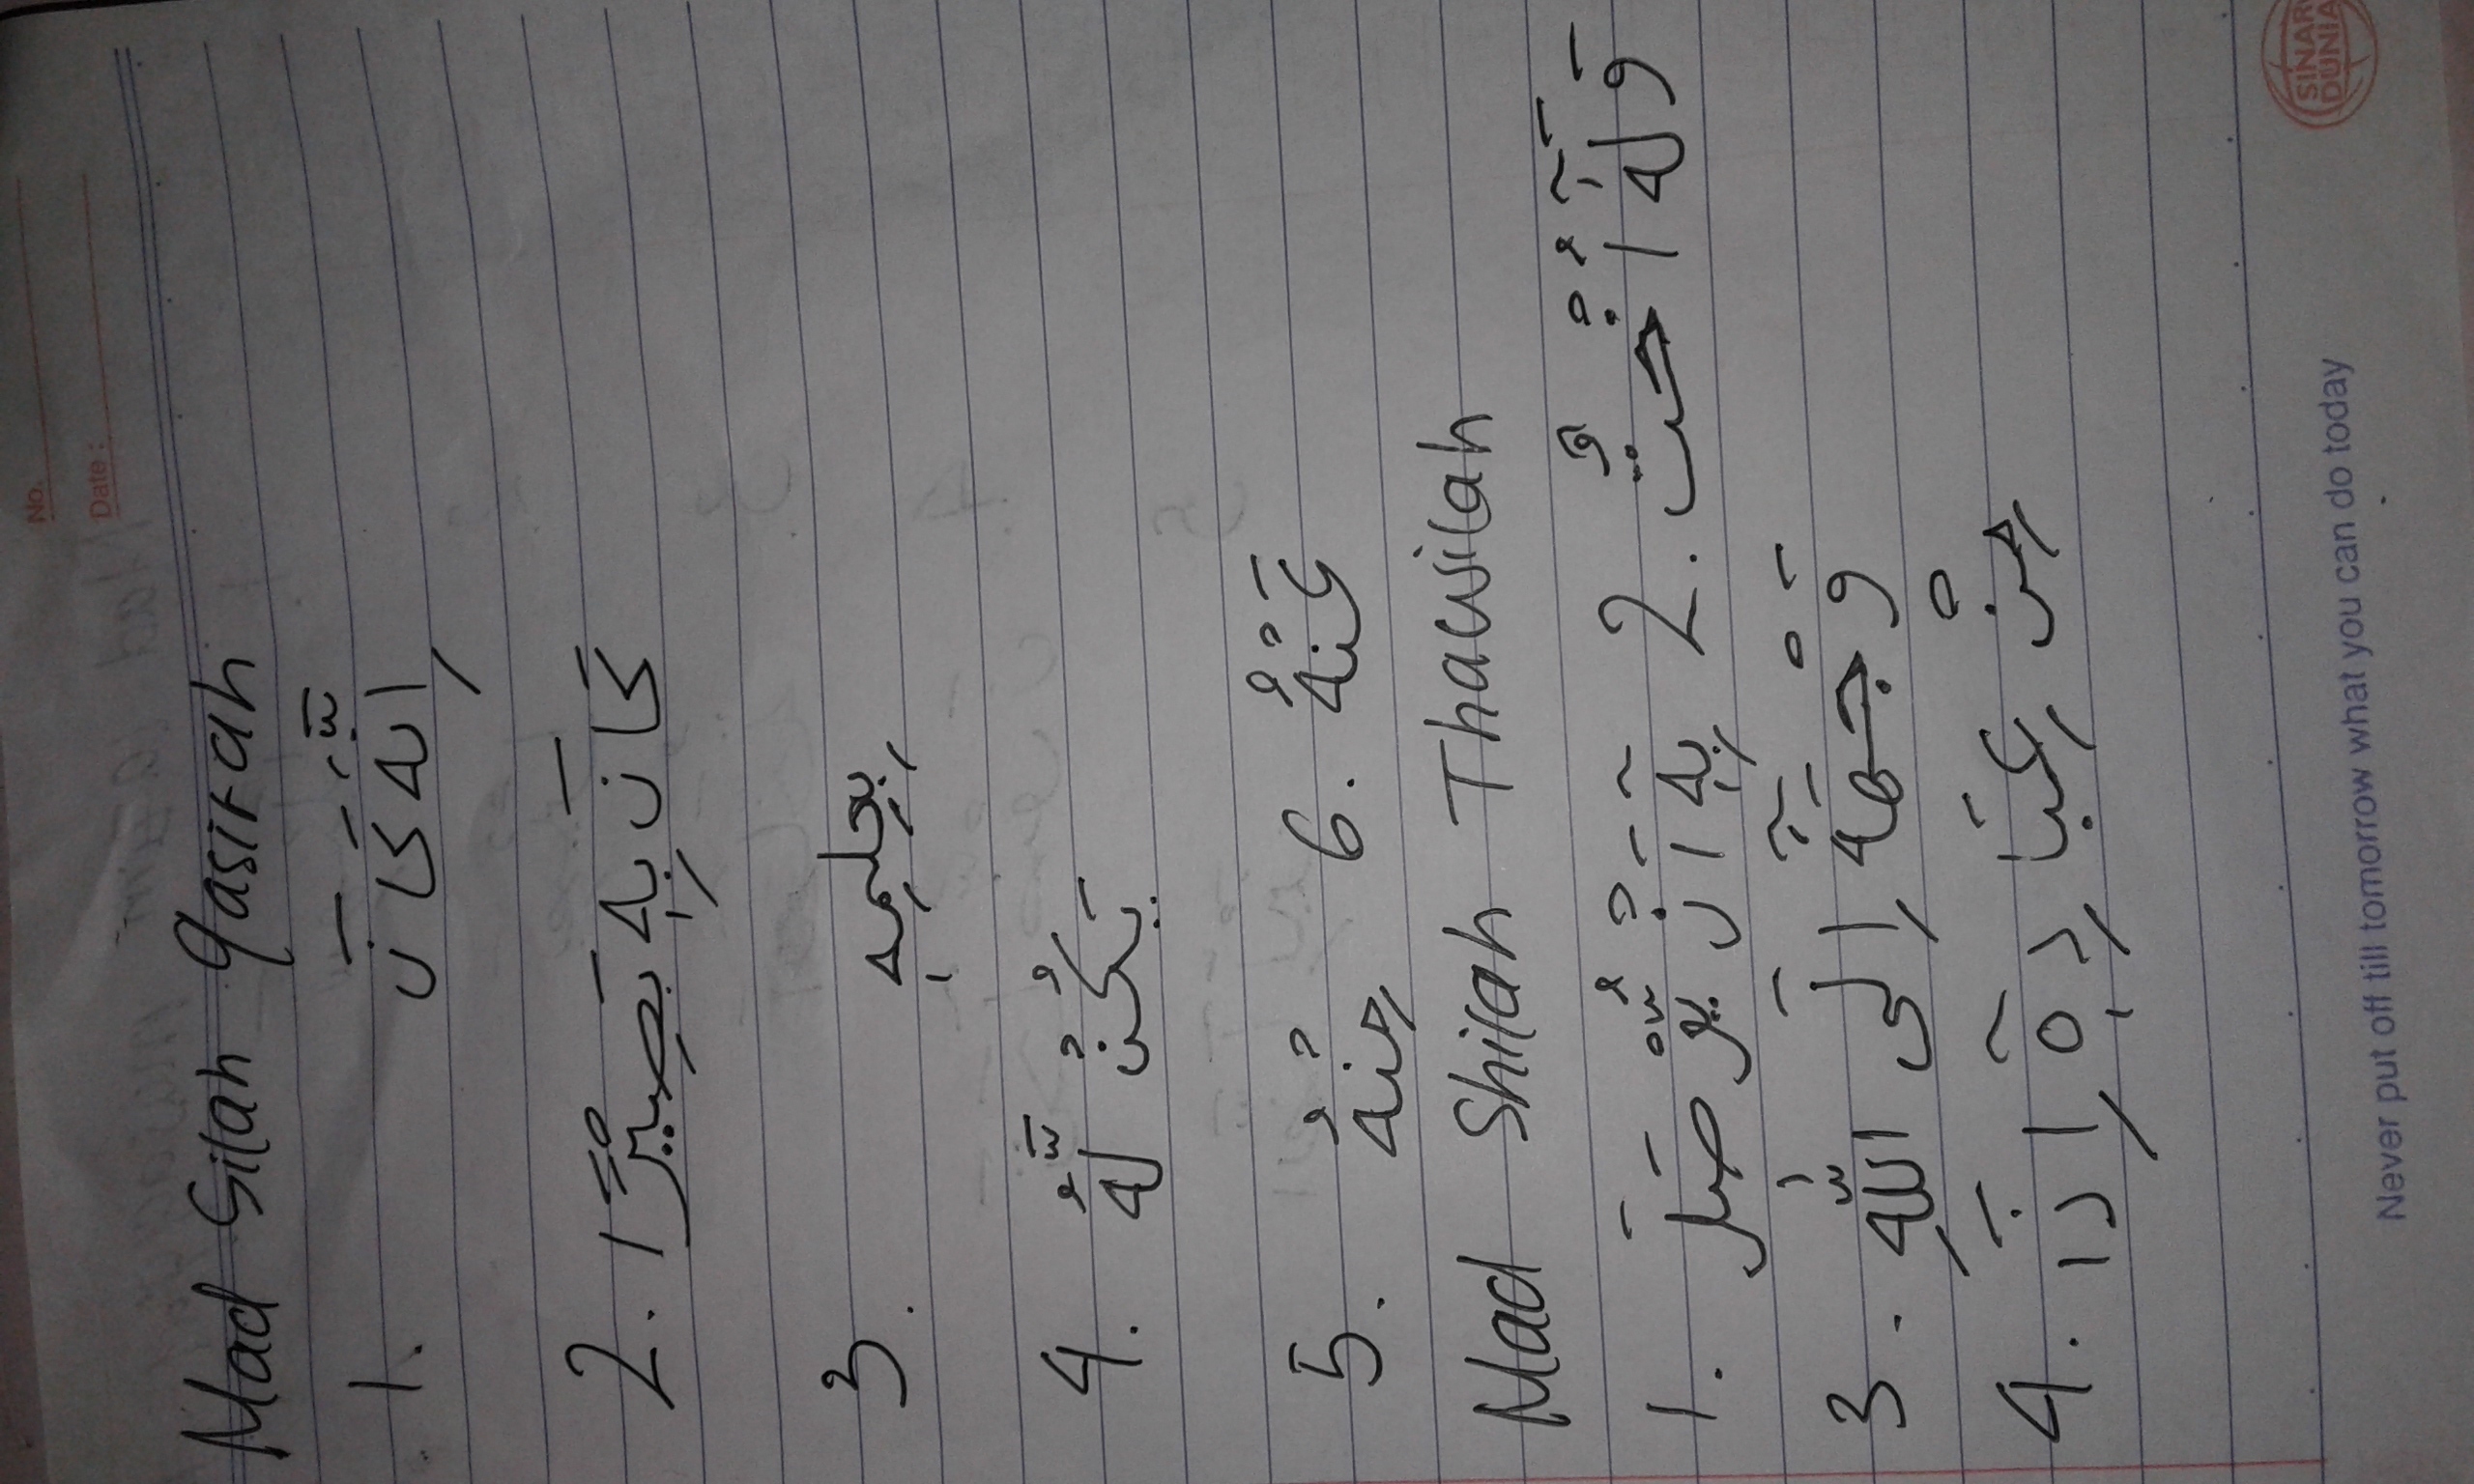 No.
Date :
Mad Silah Qasirah
1. اِنَّهٗ كَانَ
2. كَانَ بِهٖ بَصِيْرًا
3. بِعِلمِهٖ
4. يَكُنْ لَّهُ
5. مِنْهُ 6. عَنْهُ
Mad Shilah Thawilah
1. بِهٖٓ اَنْ يُّوْصَلَ 2. وَلَهٗٓ اُخْتٌ
3. وَجْهَهٗٓ اِلَى اللّٰهِ
4. مِنْ عِبَادِهٖٓ اِذَا
Never put off till tomorrow what you can do today
SINAR
DUNIA